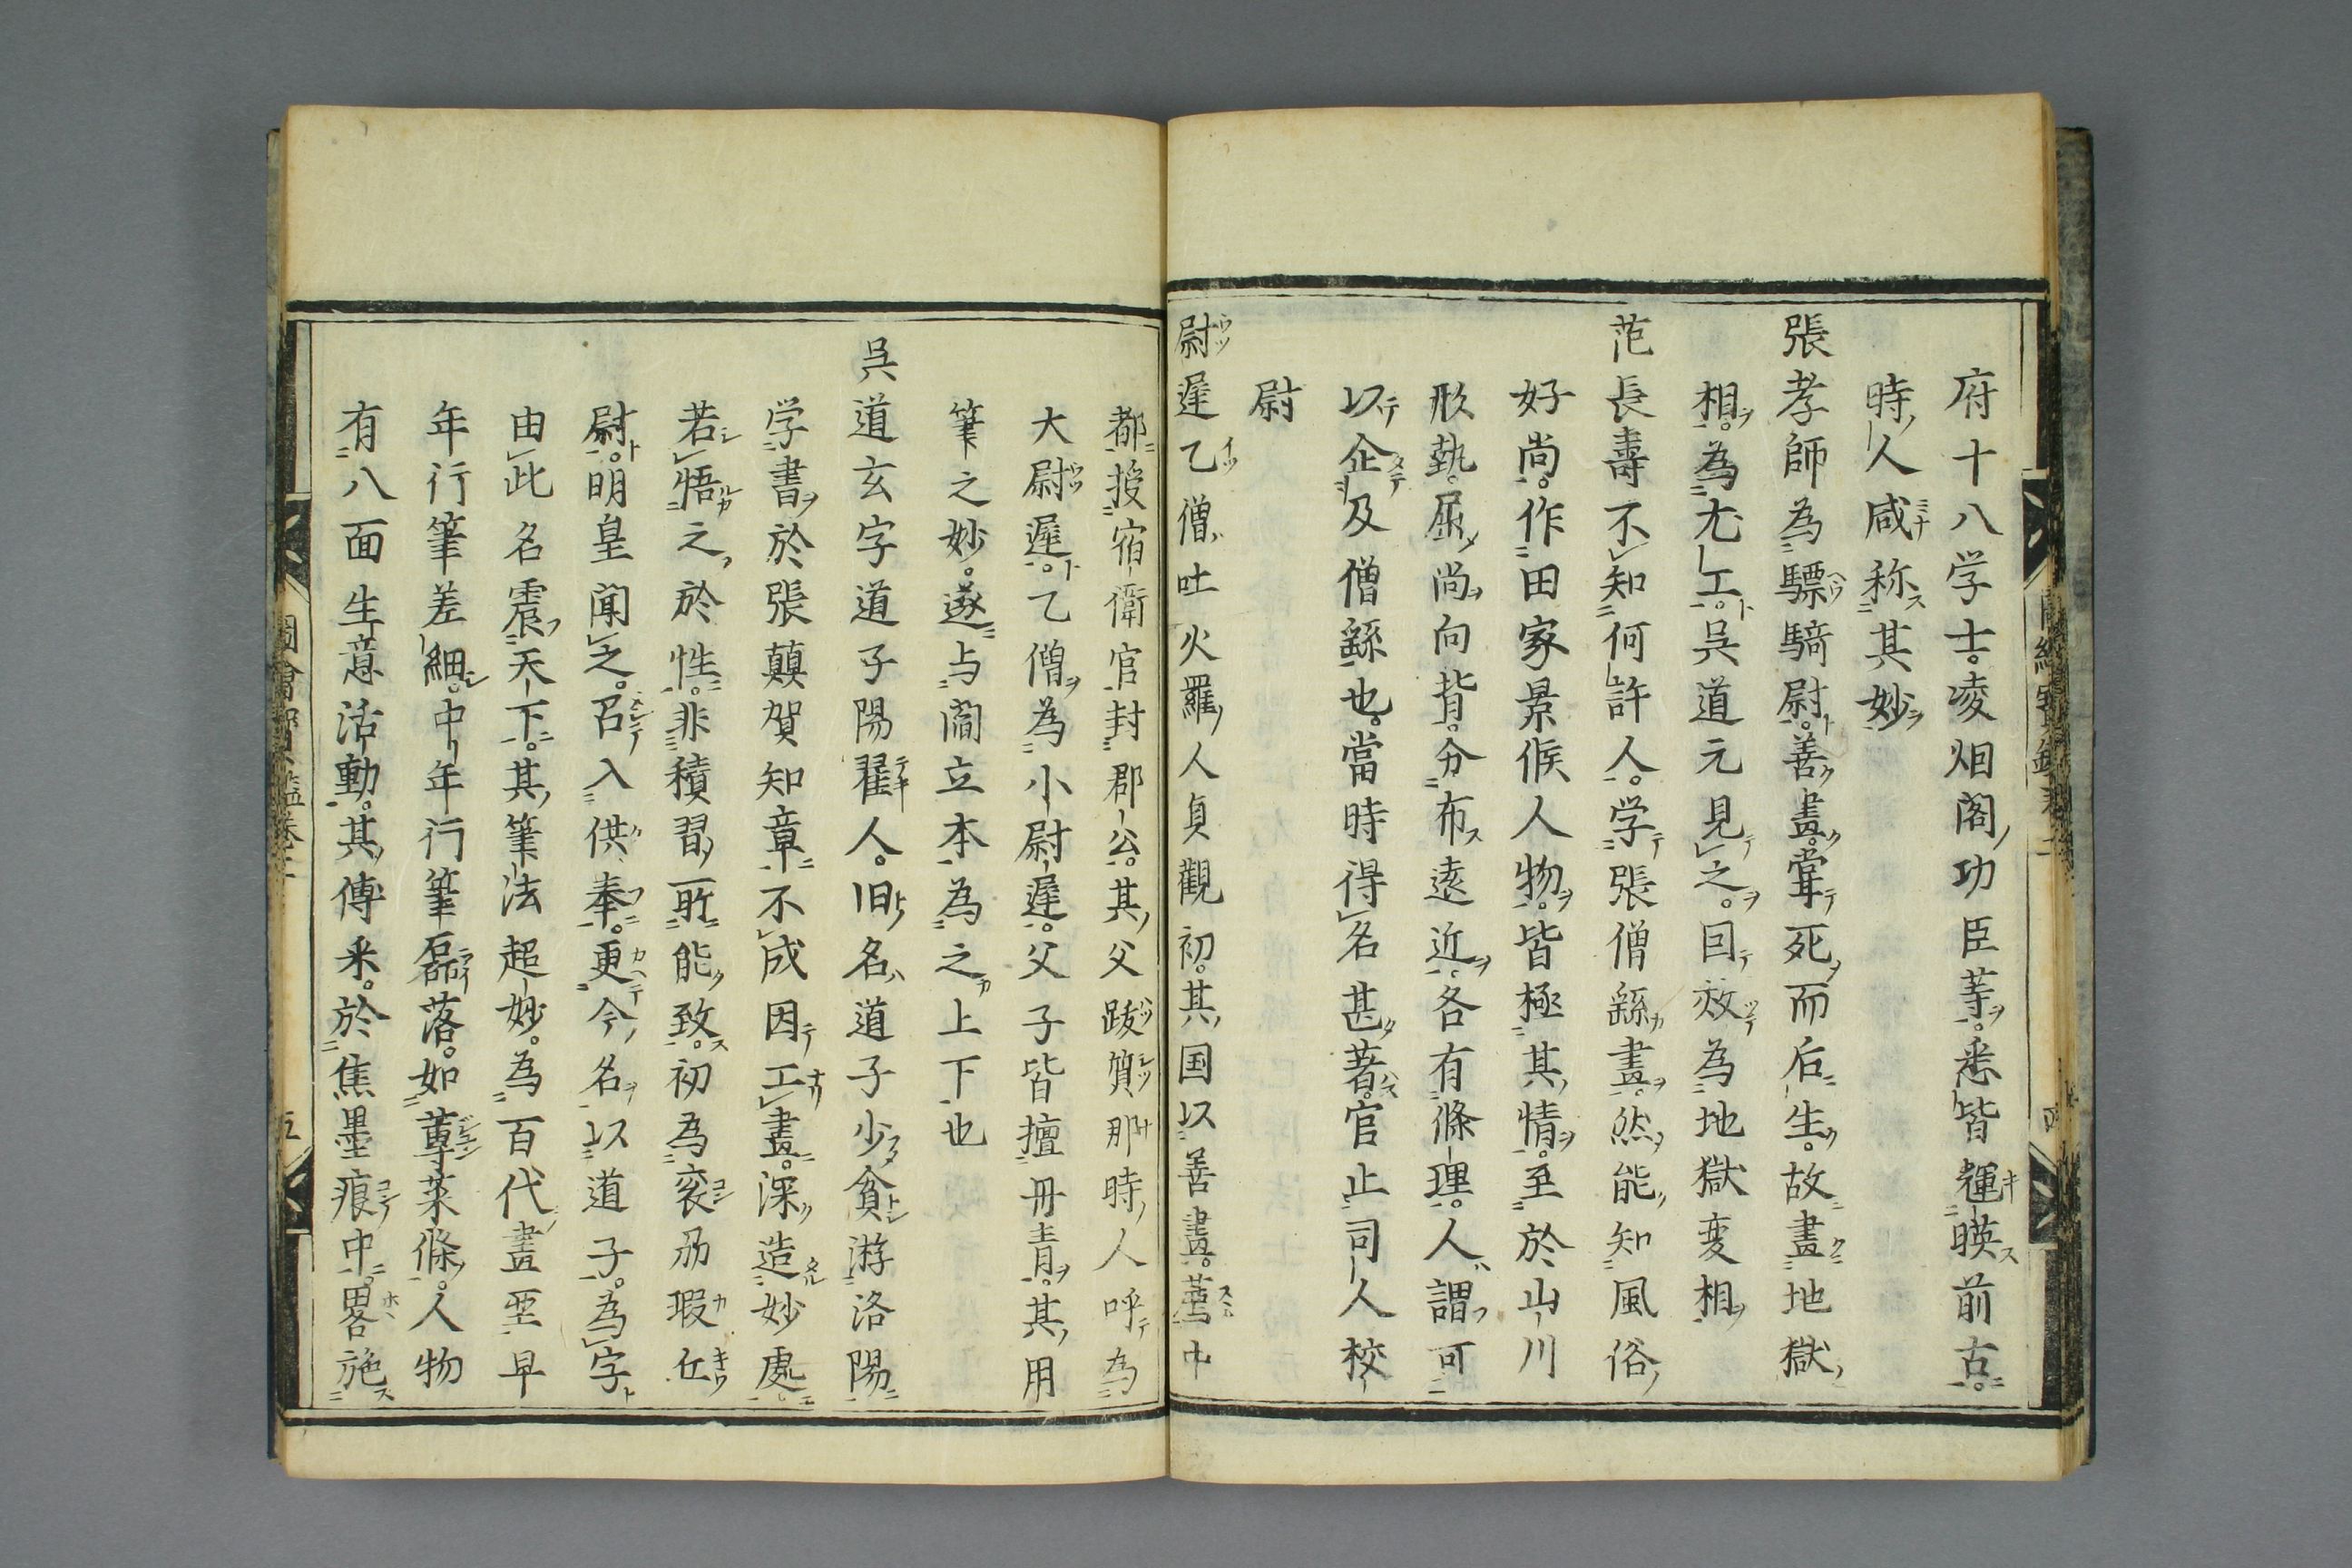 府十八学士。凌烟阁功臣等。悉皆輝暎前古。
時人咸称其妙
張孝師為驃騎尉。善畫。甞死而后生。故畫地獄
相。為尤工。呉道元見之。囙效為地獄変相
范長壽不知何許人。学張僧繇畫。然能知風俗
好尚。作田家景候人物。皆極其情。至於山川
形埶。屈尚向背。分布遠近。各有條理。人謂可
以企及僧繇也。當時得名甚著。官止司人校
尉
尉遲乙僧。吐火羅人貞觀初。其国以善畫。薦中
都。授宿衛官。封郡公。其父跋質那時人呼為
大尉遲。乙僧為小尉遲。父子皆擅丹青。其用
筆之妙。遂与閻立本為之上下也
呉道玄字道子陽翟人。旧名道子少貧游洛陽
学書於張顛賀知章。不成因工畫。深造妙處
若悟之於性。非積習所能致。初為兗州瑕丘
尉。明皇聞之。召入供奉。更今名以道子。為字
由此名震天下。其筆法超妙。為百代畫聖早
年行筆差細。中年行筆磊落。如蓴菜條。人物
有八面生意活動。其傅采。於焦墨痕中。畧施
圖會寳鑑卷二
五